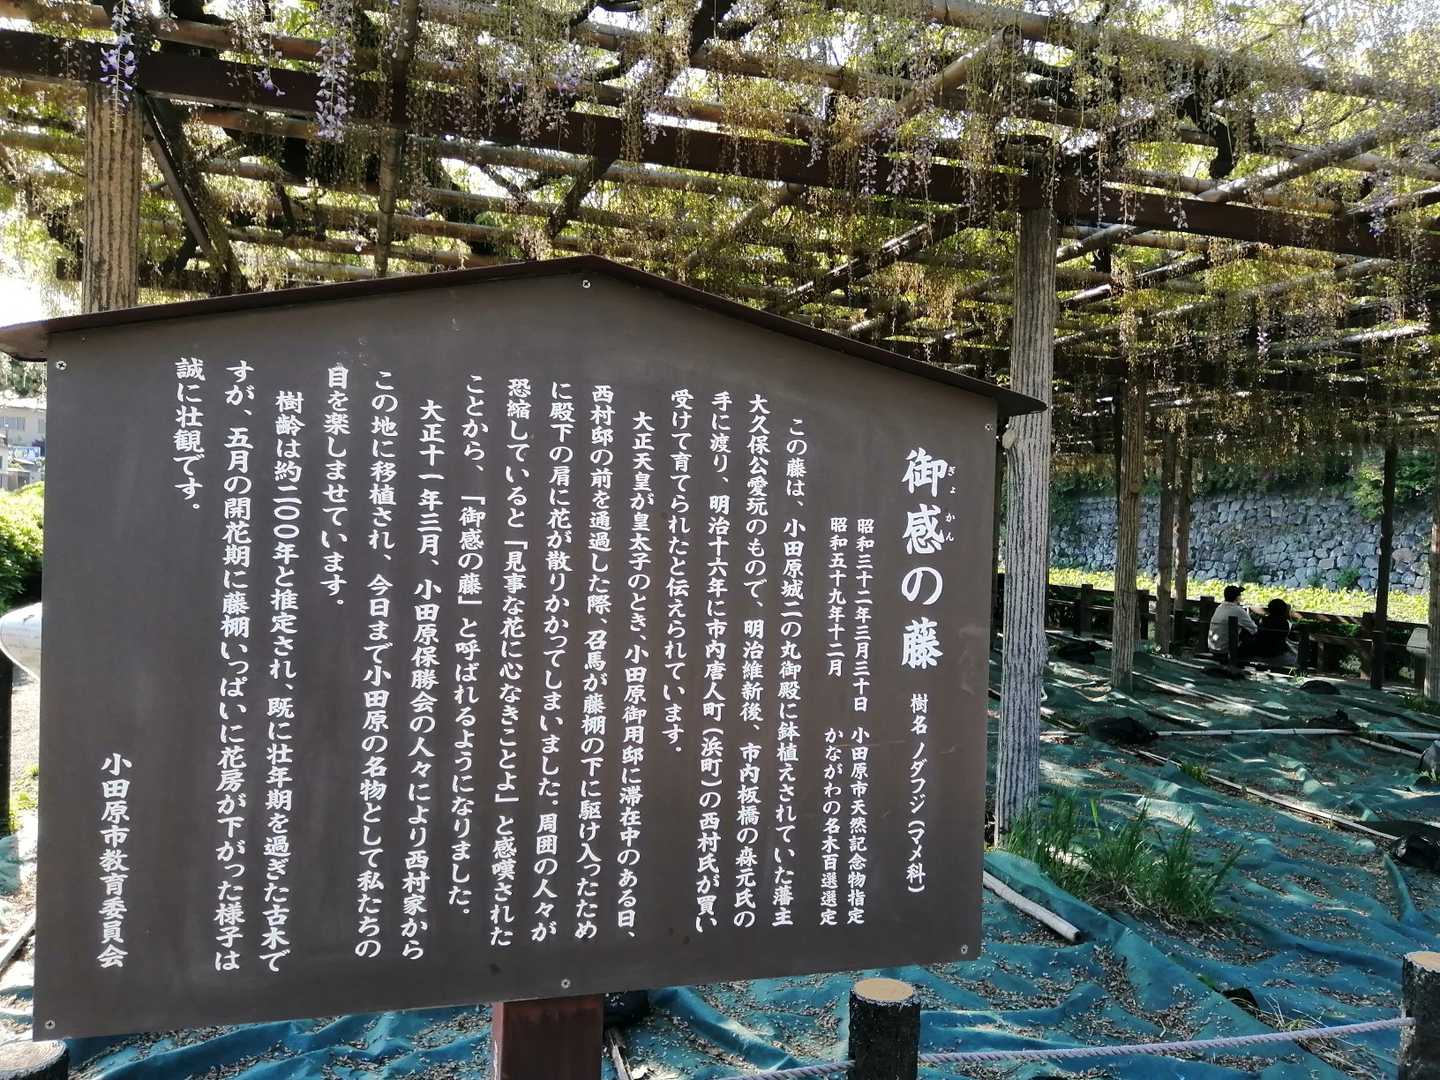 ぎょかん
御感の藤 樹名 ノダフジ(マメ科)
昭和三十二年三月三十日 小田原市天然記念物指定
昭和五十九年十二月 かながわの名木百選選定
この藤は、小田原城二の丸御殿に鉢植えされていた藩主
大久保公愛玩のもので、明治維新後、市内板橋の森元氏の
手に渡り、明治十六年に市内唐人町(浜町)の西村氏が買い
受けて育てられたと伝えられています。
大正天皇が皇太子のとき、小田原御用邸に滞在中のある日、
西村邸の前を通過した際、召馬が藤棚の下に駆け入ったため
に殿下の肩に花が散りかかってしまいました。周囲の人々が
恐縮していると「見事な花に心なきことよ」と感嘆された
ことから、「御感の藤」と呼ばれるようになりました。
大正十一年三月、小田原保勝会の人々により西村家から
この地に移植され、今日まで小田原の名物として私たちの
目を楽しませています。
樹齢は約二〇〇年と推定され、既に壮年期を過ぎた古木で
すが、五月の開花期に藤棚いっぱいに花房が下がった様子は
誠に壮観です。
小田原市教育委員会